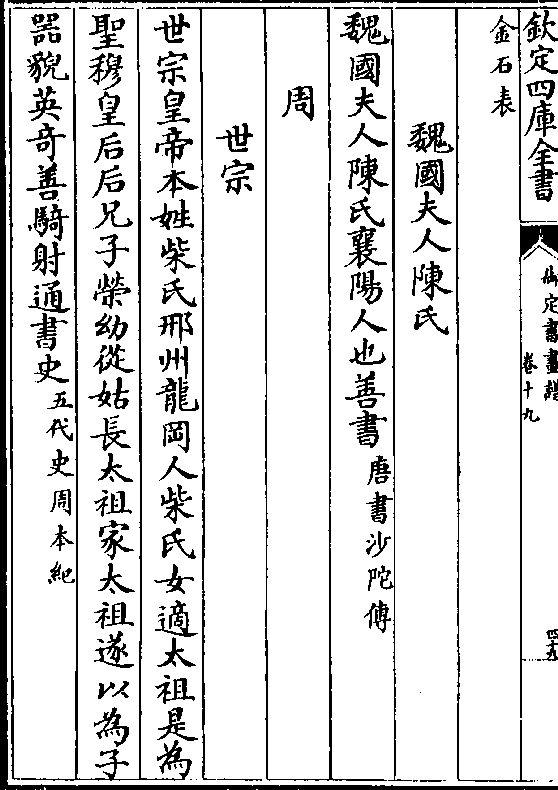 欽定四庫全書
御定書畫譜
卷十九
四十九
金石表
魏國夫人陳氏
魏國夫人陳氏襄陽人也善書唐書沙陀傳
周
世宗
世宗皇帝本姓柴氏邢州龍岡人柴氏女適太祖是為
聖穆皇后后兄子榮幼從姑長太祖家太祖遂以為子
器貌英奇善騎射通書史五代史周本紀